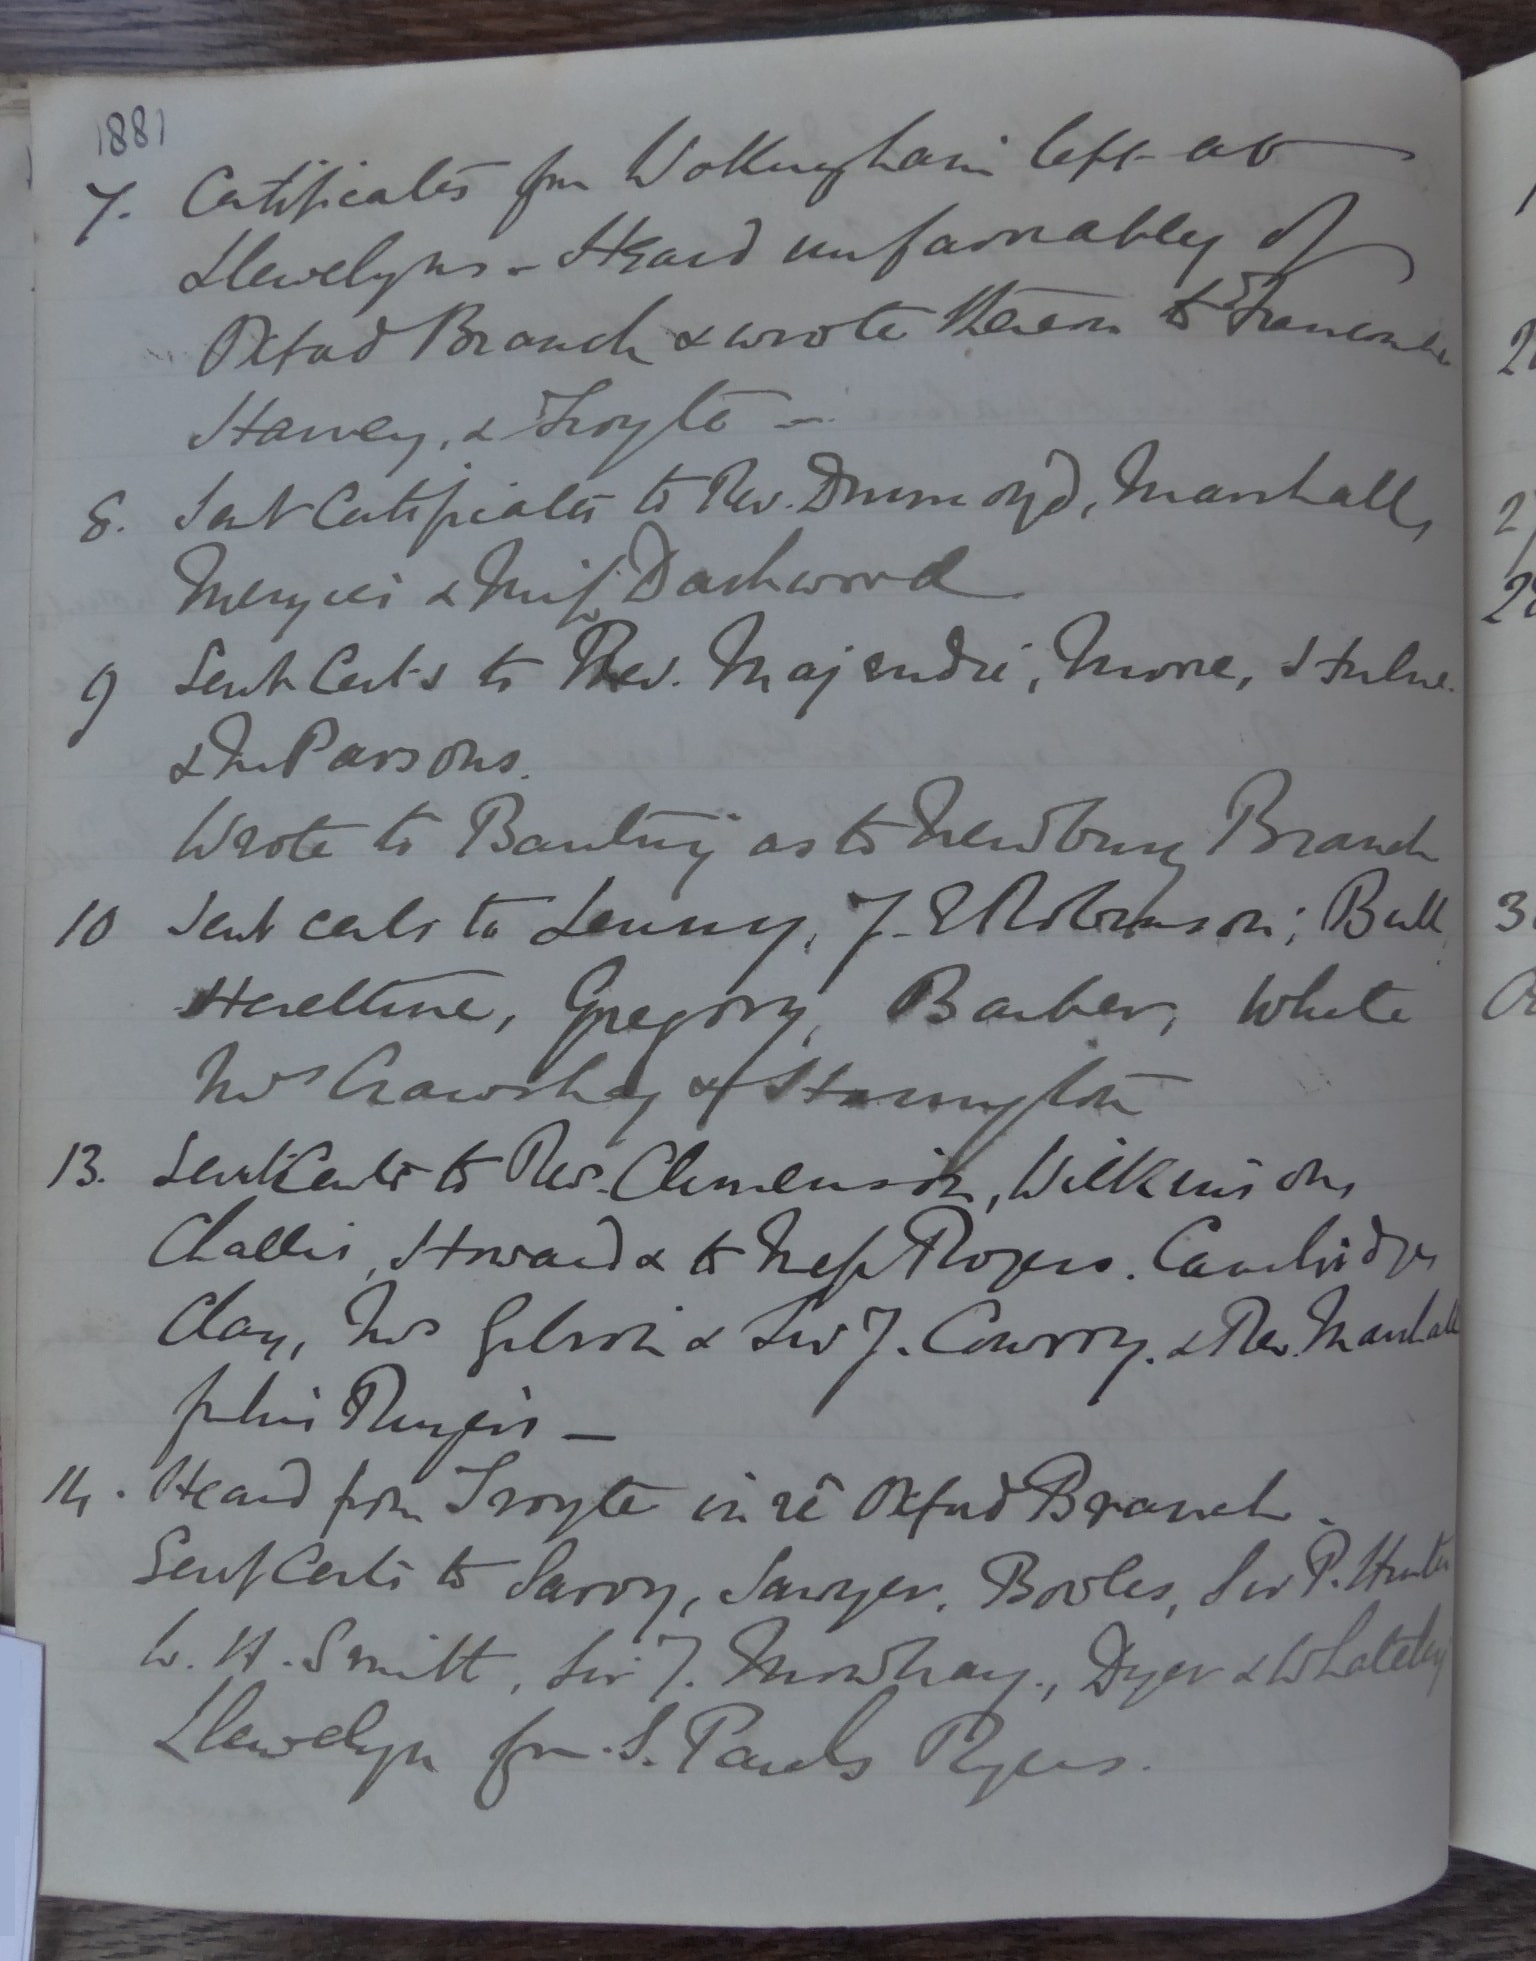 1881
7. Certificates for Wokingham left at
Llewelyns - Heard unfavorably of
Oxford Branch & wrote thereon to
Harvey, & Troyte -
8. Sent Certificates to Rev. Drummond, Marshall,
Menzies & Miss Dashwood
9 Sent Certs to Rev. Majendie, Morre, Hulme
& Mr Parsons.
Wrote to Banting as to Newbury Branch
10 Sent certs to Lenny, J. E Robinson; Bull
Heseltine, Gregory, Barber, White
Mrs Crawshay &
13. Sent Certs to Rev. Climenson, Wilkinson,
Challis, Howard & to Messrs Rogers. Cambridge
Clay, Mrs Gibson & Sir J. Conroy. & Rev. Marshall
for his Ringers -
14. Heard from Troyte in re Oxford Branch.
Sent Certs to Savory, Sawyer, Bowles, Sir P. Hunter
W. H. Smith, Sir J. Mowbray, Dyer & Whateley
Llewelyn for S. Pauls Rgers.